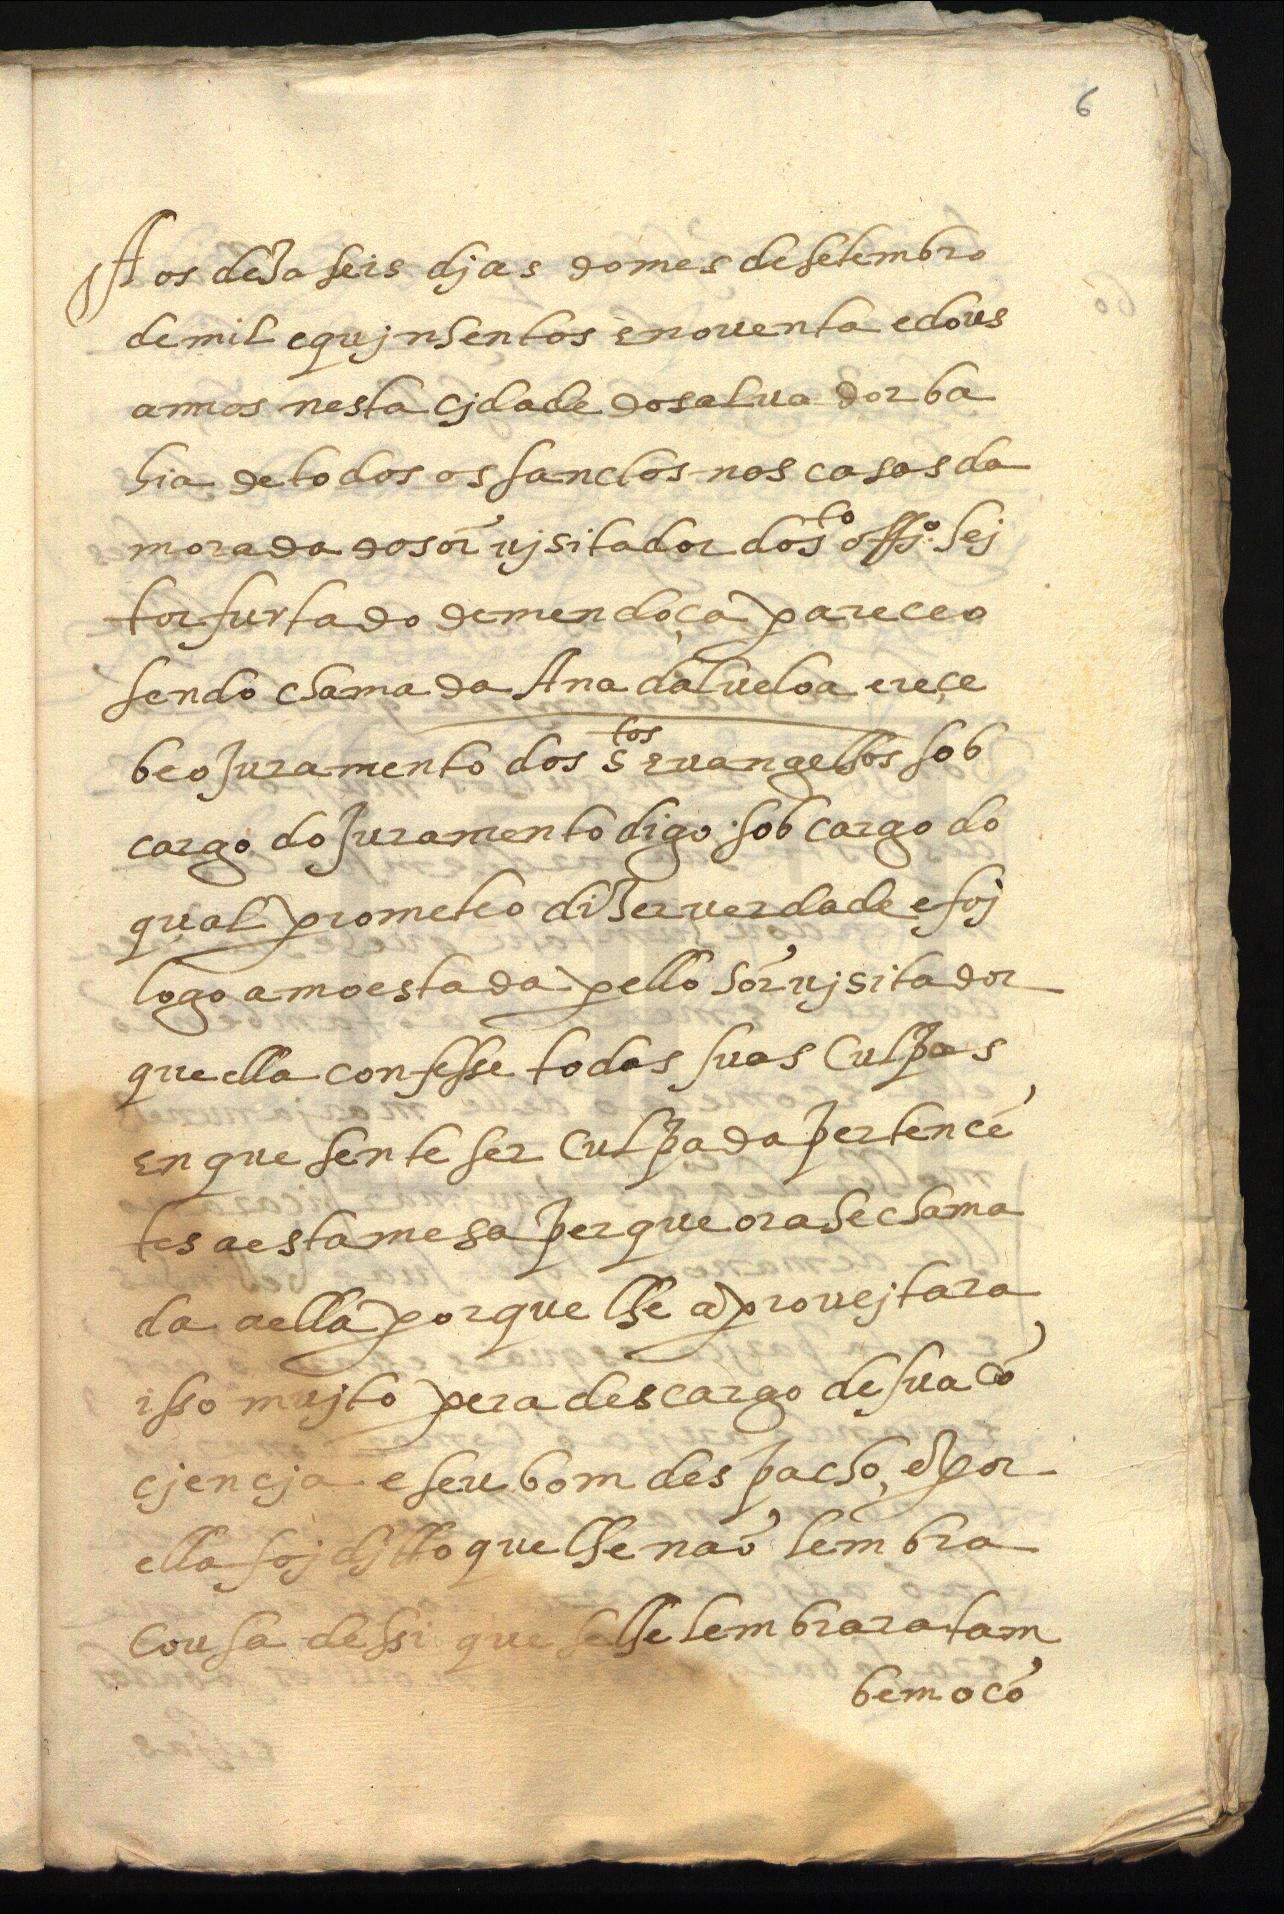 6
Aos deza seis djas do mes de setembro
de mil e quynhentos e noventa e dous
annos nesta cjdade do salvador ba
hia de todos os sanctos nas casas da
morada do sor vjsitador do sto offjo. hej
tor furtado de mendoça pareceo
sendo chamada Ana dalveloa e rece
beo juramento dos stos evangelhos sob
cargo do juramento digo sob cargo do
qual prometeo dizer verdade e foj
logo amoestada pello sor vjsitador
que ella confesse todas suas culpas
en que sente ser culpada pertencẽ
tes a esta mesa per que ora he chama
da a ella porque lhe aprovejtara
isso mujto pera descargo de sua cõ
cjencja e seu bom despacho, e por
ella foj djtto que lhe não lembra
cousa de ssi que se lhe lembrara tam
bem o cõ